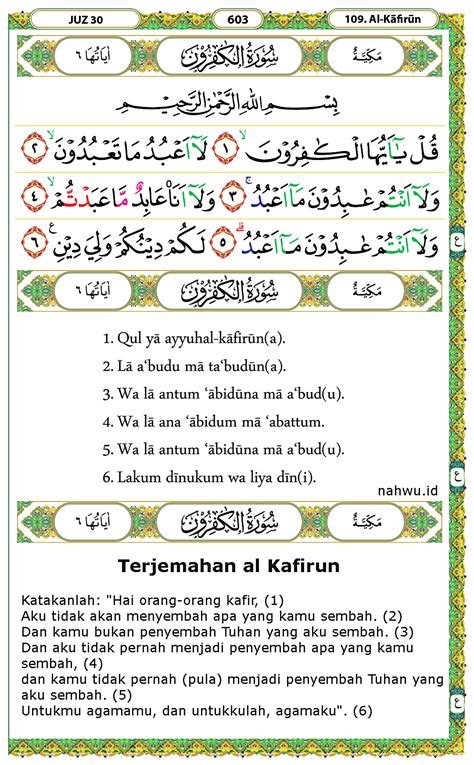 JUZ 30 603 109. Al-Kāfirūn
مَكِّيَّةٌ سُوْرَةُ الْكٰفِرُوْنَ اٰيَاتُهَا ٦
بِسْمِ اللّٰهِ الرَّحْمٰنِ الرَّحِيْمِ
قُلْ يٰٓاَيُّهَا الْكٰفِرُوْنَۙ ١ لَآ اَعْبُدُ مَا تَعْبُدُوْنَۙ ٢
وَلَآ اَنْتُمْ عٰبِدُوْنَ مَآ اَعْبُدُۚ ٣ وَلَآ اَنَا۠ عَابِدٌ مَّا عَبَدْتُّمْۙ ٤
وَلَآ اَنْتُمْ عٰبِدُوْنَ مَآ اَعْبُدُۗ ٥ لَكُمْ دِيْنُكُمْ وَلِيَ دِيْنِ ࣖ ٦
ع
مَكِّيَّةٌ سُوْرَةُ الْكٰفِرُوْنَ اٰيَاتُهَا ٦
1. Qul yā ayyuhal-kāfirūn(a).
2. Lā a‘budu mā ta‘budūn(a).
3. Wa lā antum ‘ābidūna mā a‘bud(u).
4. Wa lā ana ‘ābidum mā ‘abattum.
5. Wa lā antum ‘ābidūna mā a‘bud(u).
6. Lakum dīnukum wa liya dīn(i).
ع
nahwu.id
مَكِّيَّةٌ سُوْرَةُ الْكٰفِرُوْنَ اٰيَاتُهَا ٦
Terjemahan al Kafirun
Katakanlah: "Hai orang-orang kafir, (1)
Aku tidak akan menyembah apa yang kamu sembah. (2)
Dan kamu bukan penyembah Tuhan yang aku sembah. (3)
Dan aku tidak pernah menjadi penyembah apa yang kamu
sembah, (4)
dan kamu tidak pernah (pula) menjadi penyembah Tuhan yang
aku sembah. (5)
Untukmu agamamu, dan untukkulah, agamaku". (6)
ع